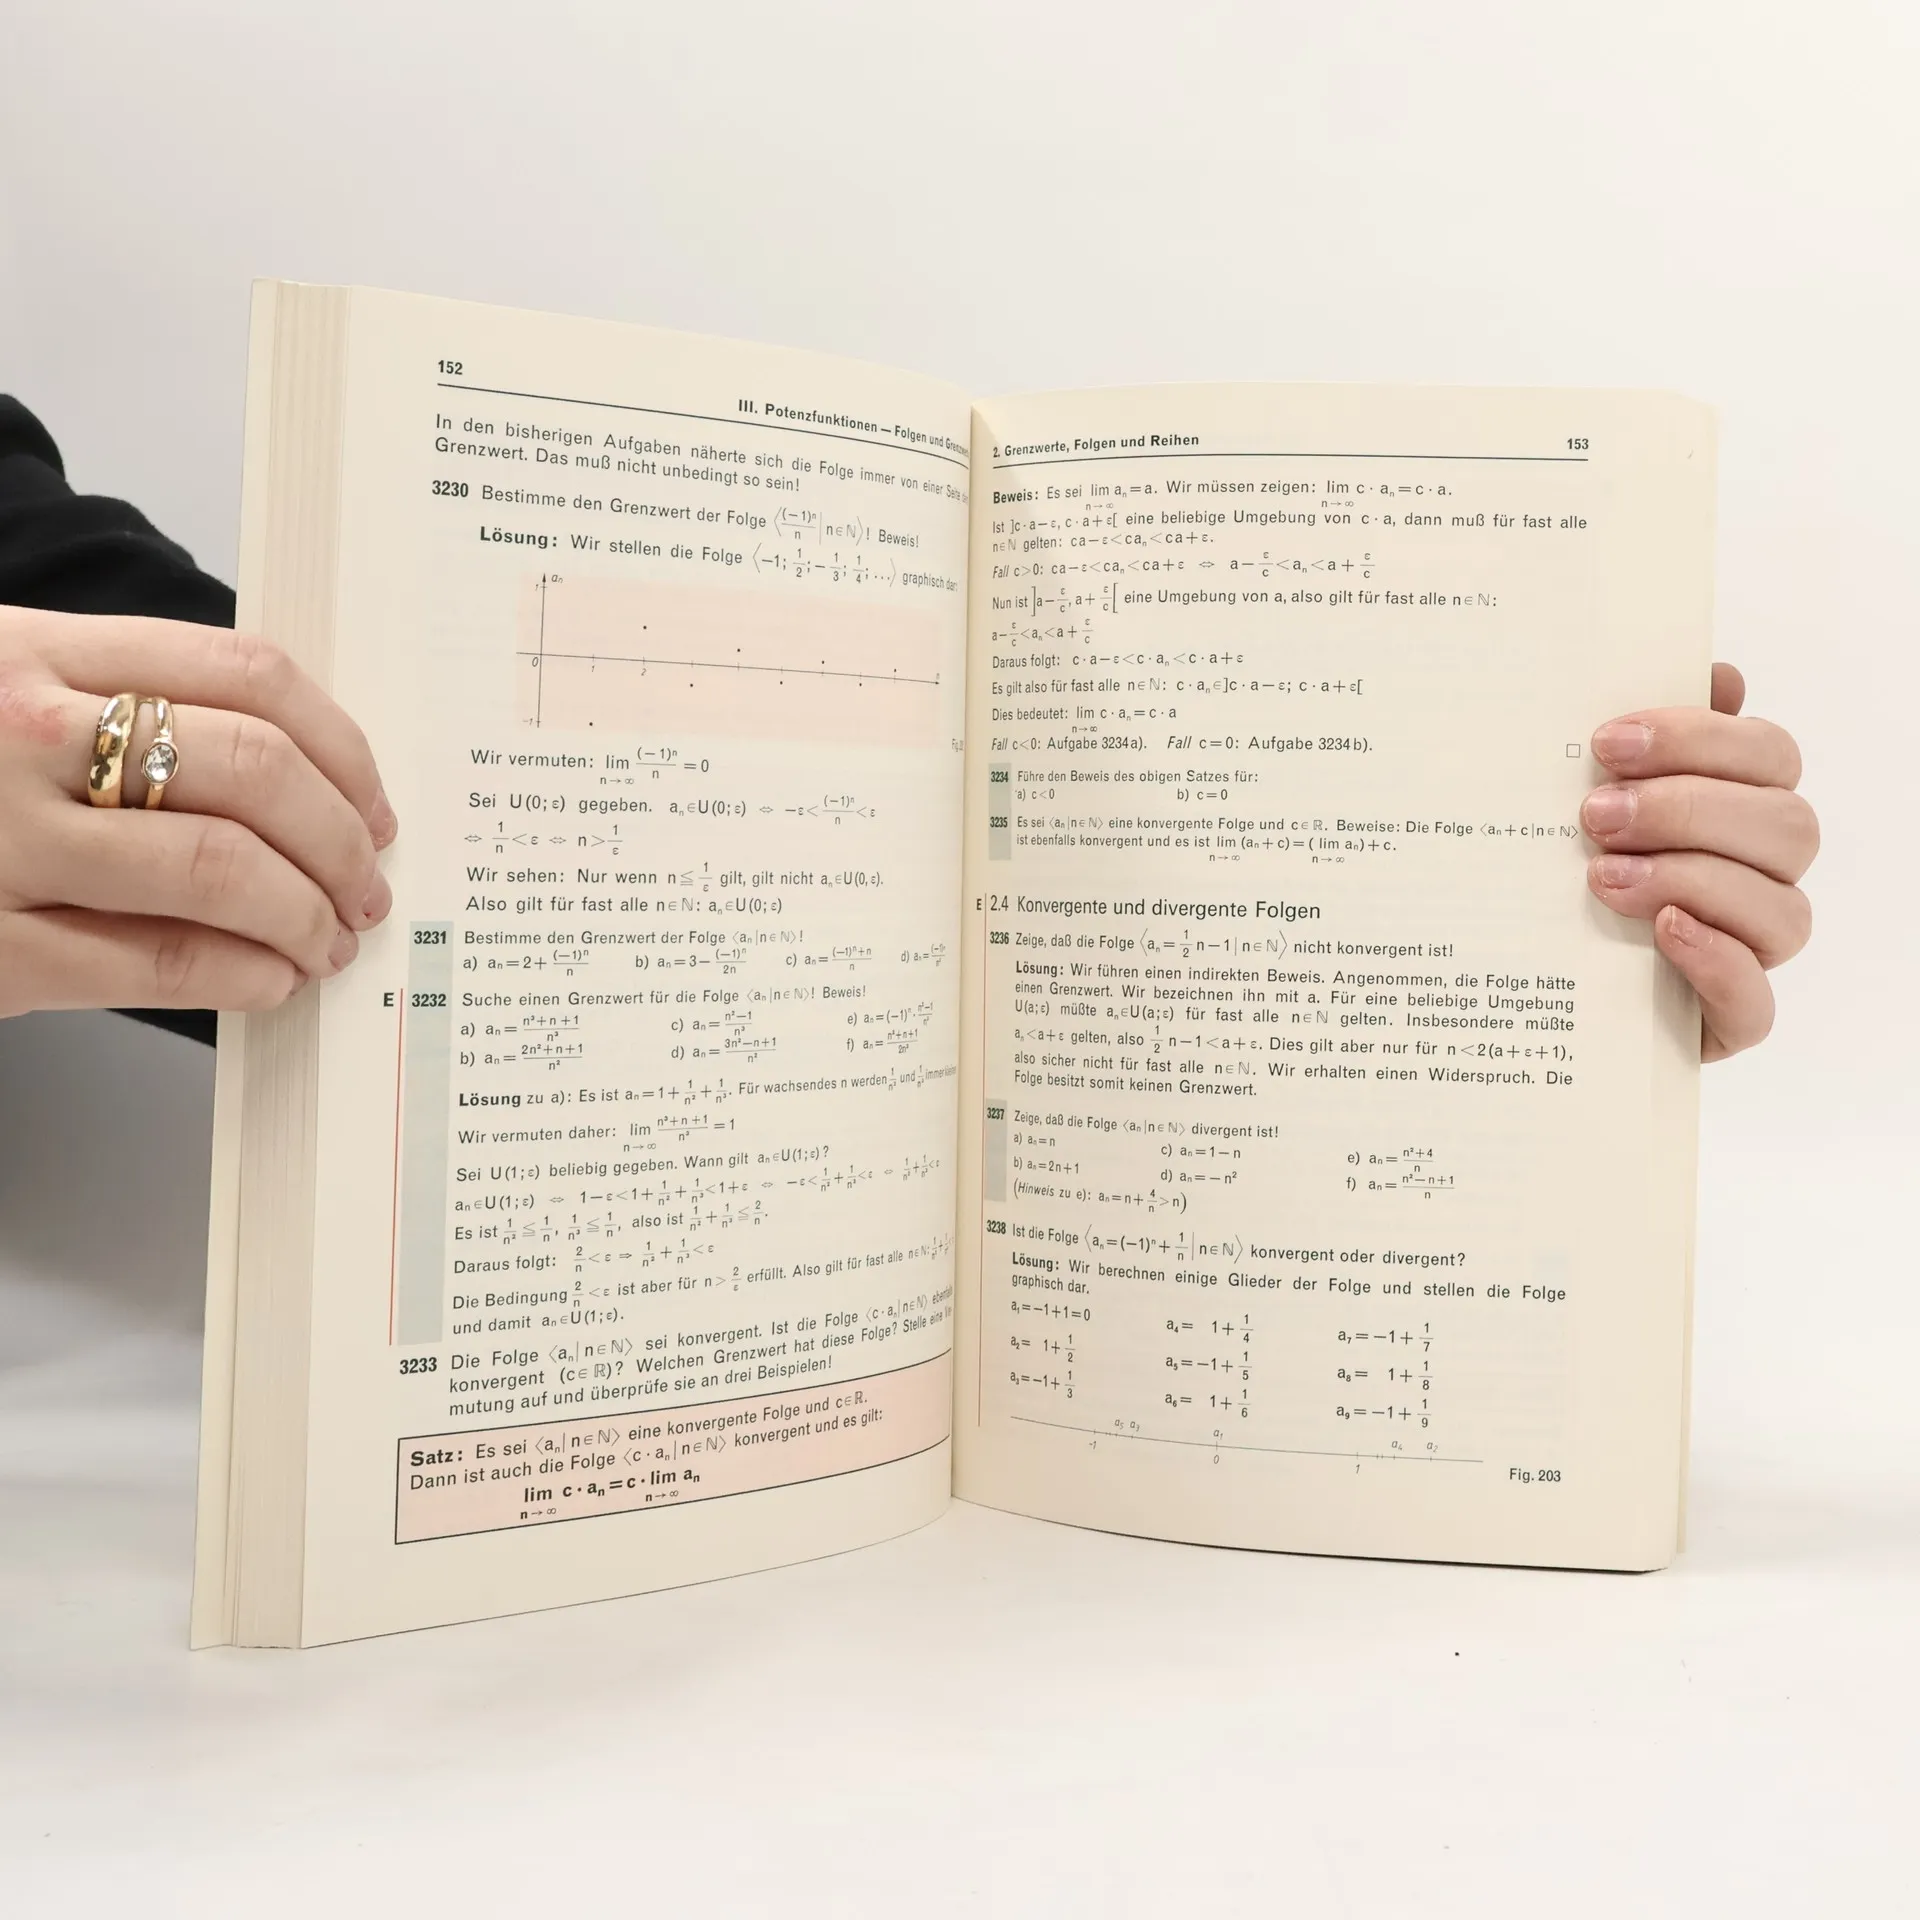 152
III. Potenzfunktionen — Folgen und
In den bisherigen Aufgaben näherte sich die Folge immer von einer Seite
Grenzwert. Das muß nicht unbedingt so sein!
3230 Bestimme den Grenzwert der Folge ⟨(−1)ⁿ/n | n∈ℕ⟩! Beweis!
Lösung: Wir stellen die Folge ⟨−1; 1/2; −1/3; 1/4; ...⟩ graphisch dar:
1 aₙ
0 1 2 n
−1
Wir vermuten: lim n→∞ (−1)ⁿ/n = 0
Sei U(0; ε) gegeben. aₙ∈U(0; ε) ⇔ −ε < (−1)ⁿ/n < ε
⇔ 1/n < ε ⇔ n > 1/ε
Wir sehen: Nur wenn n ≦ 1/ε gilt, gilt nicht aₙ∈U(0, ε).
Also gilt für fast alle n∈ℕ: aₙ∈U(0; ε)
3231 Bestimme den Grenzwert der Folge ⟨aₙ|n∈ℕ⟩!
a) aₙ = 2 + (−1)ⁿ/n b) aₙ = 3 − (−1)ⁿ/2n c) aₙ = (−1)ⁿ+n/n d) aₙ = (−1)ⁿ/n²
E 3232 Suche einen Grenzwert für die Folge ⟨aₙ|n∈ℕ⟩! Beweis!
a) aₙ = n³+n+1/n³ c) aₙ = n²−1/n³ e) aₙ = (−1)ⁿ · n²−1/n²
b) aₙ = 2n²+n+1/n² d) aₙ = 3n²−n+1/n² f) aₙ = n²+n+1/2n²
Lösung zu a): Es ist aₙ = 1 + 1/n² + 1/n³. Für wachsendes n werden 1/n² und 1/n³ immer
Wir vermuten daher: lim n→∞ n³+n+1/n³ = 1
Sei U(1; ε) beliebig gegeben. Wann gilt aₙ∈U(1; ε)?
aₙ∈U(1; ε) ⇔ 1−ε < 1 + 1/n² + 1/n³ < 1+ε ⇔ −ε < 1/n² + 1/n³ < ε ⇔ 1/n² + 1/n³ < ε
Es ist 1/n² ≦ 1/n, 1/n³ ≦ 1/n, also ist 1/n² + 1/n³ ≦ 2/n.
Daraus folgt: 2/n < ε ⇒ 1/n² + 1/n³ < ε
Die Bedingung 2/n < ε ist aber für n > 2/ε erfüllt. Also gilt für fast alle n∈ℕ:
und damit aₙ∈U(1; ε).
3233 Die Folge ⟨aₙ|n∈ℕ⟩ sei konvergent. Ist die Folge ⟨c · aₙ|n∈ℕ⟩
konvergent (c∈ℝ)? Welchen Grenzwert hat diese Folge? Stelle eine
mutung auf und überprüfe sie an drei Beispielen!
Satz: Es sei ⟨aₙ|n∈ℕ⟩ eine konvergente Folge und c∈ℝ.
Dann ist auch die Folge ⟨c · aₙ|n∈ℕ⟩ konvergent und es gilt:
lim n→∞ c · aₙ = c · lim n→∞ aₙ
2. Grenzwerte, Folgen und Reihen 153
Beweis: Es sei lim n→∞ aₙ = a. Wir müssen zeigen: lim n→∞ c · aₙ = c · a.
Ist ]c · a − ε, c · a + ε[ eine beliebige Umgebung von c · a, dann muß für fast alle
n∈ℕ gelten: ca − ε < caₙ < ca + ε.
Fall c>0: ca − ε < caₙ < ca + ε ⇔ a − ε/c < aₙ < a + ε/c
Nun ist ]a − ε/c, a + ε/c[ eine Umgebung von a, also gilt für fast alle n∈ℕ:
a − ε/c < aₙ < a + ε/c
Daraus folgt: c · a − ε < c · aₙ < c · a + ε
Es gilt also für fast alle n∈ℕ: c · aₙ∈]c · a − ε; c · a + ε[
Dies bedeutet: lim n→∞ c · aₙ = c · a
Fall c<0: Aufgabe 3234a). Fall c=0: Aufgabe 3234b). □
3234 Führe den Beweis des obigen Satzes für:
a) c<0 b) c=0
3235 Es sei ⟨aₙ|n∈ℕ⟩ eine konvergente Folge und c∈ℝ. Beweise: Die Folge ⟨aₙ+c|n∈ℕ⟩
ist ebenfalls konvergent und es ist lim n→∞ (aₙ+c) = (lim n→∞ aₙ)+c.
E 2.4 Konvergente und divergente Folgen
3236 Zeige, daß die Folge ⟨aₙ = 1/2 n − 1 | n∈ℕ⟩ nicht konvergent ist!
Lösung: Wir führen einen indirekten Beweis. Angenommen, die Folge hätte
einen Grenzwert. Wir bezeichnen ihn mit a. Für eine beliebige Umgebung
U(a; ε) müßte aₙ∈U(a; ε) für fast alle n∈ℕ gelten. Insbesondere müßte
aₙ<a+ε gelten, also 1/2 n−1<a+ε. Dies gilt aber nur für n<2(a+ε+1),
also sicher nicht für fast alle n∈ℕ. Wir erhalten einen Widerspruch. Die
Folge besitzt somit keinen Grenzwert.
3237 Zeige, daß die Folge ⟨aₙ|n∈ℕ⟩ divergent ist!
a) aₙ=n c) aₙ=1−n e) aₙ = n²+4/n
b) aₙ=2n+1 d) aₙ=−n² f) aₙ = n²−n+1/n
(Hinweis zu e): aₙ = n + 4/n > n)
3238 Ist die Folge ⟨aₙ = (−1)ⁿ + 1/n | n∈ℕ⟩ konvergent oder divergent?
Lösung: Wir berechnen einige Glieder der Folge und stellen die Folge
graphisch dar.
a₁ = −1+1 = 0 a₄ = 1 + 1/4 a₇ = −1 + 1/7
a₂ = 1 + 1/2 a₅ = −1 + 1/5 a₈ = 1 + 1/8
a₃ = −1 + 1/3 a₆ = 1 + 1/6 a₉ = −1 + 1/9
a₅ a₃ a₁ a₄ a₂
−1 0 1
Fig. 203